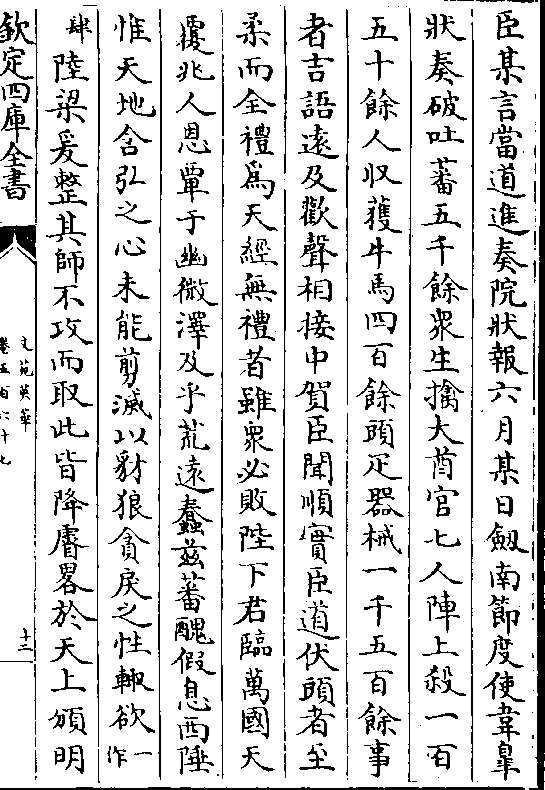 臣某言當道進奏院狀報六月某日劔南節度使韋臯
狀奏破吐蕃五千餘衆生擒大酋官七人陣上殺一百
五十餘人収獲牛馬四百餘頭疋器械一千五百餘事
者吉語遠及歡聲相接中賀臣聞順實臣道伏頭者至
柔而全禮爲天經無禮者雖衆必敗陛下君臨萬國天
覆兆人恩覃于幽微澤及乎荒遠蠢茲蕃醜假息西陲
惟天地含弘之心未能剪滅以豺狼貪戾之性輙欲一作
肆陸梁爰整其師不攻而取此皆降睿畧於天上頒明
欽定四庫全書
文苑英華
卷五百六十七
十三